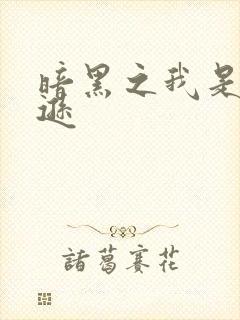 暗黑之我是
逊
諸葛賽花